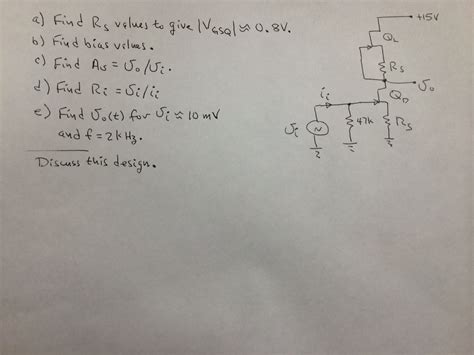 a) Find Rs values to give |VGSQ| ≈ 0.8V.
b) Find bias values.
c) Find As = Vo/Vi.
d) Find Ri = vi/ii
e) Find Vo(t) for Vi ≈ 10 mV
and f = 2kHz.
Discuss this design.
+15V
QL
Rs
Vo
QD
ii
Vi
47k
Rs